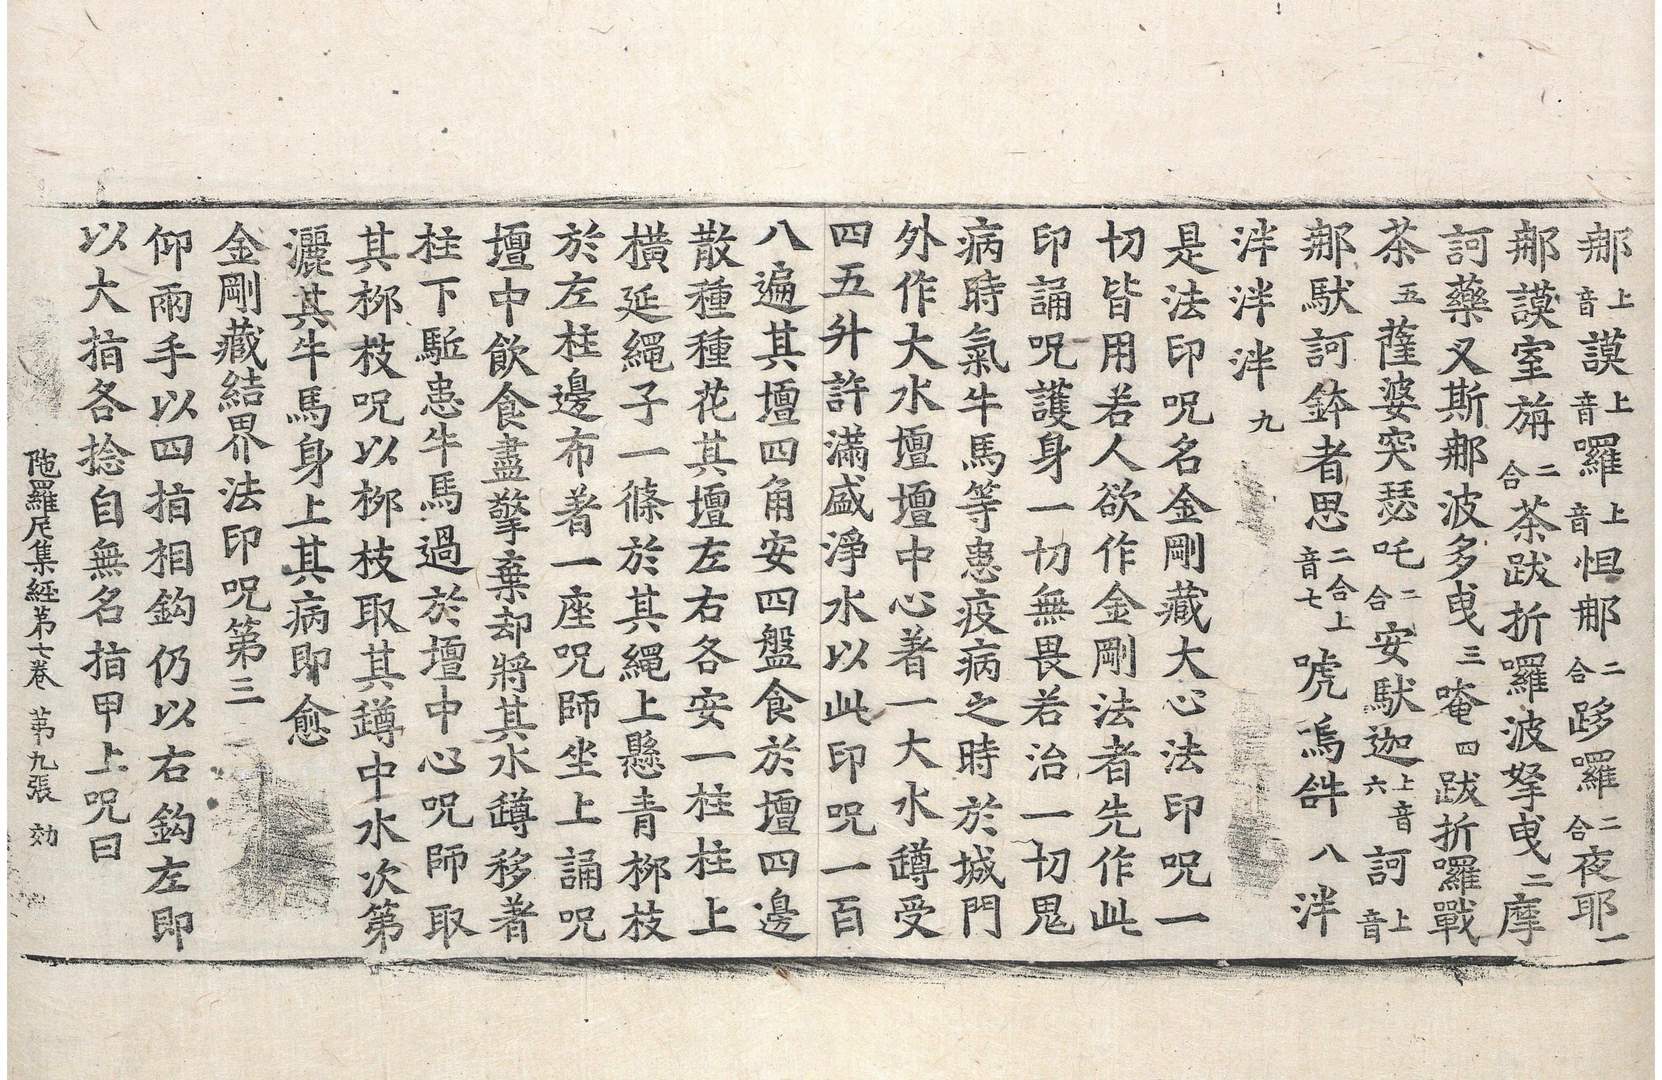 那上音謨上音囉上音怛那二合跢囉二合夜耶一
那謨室旃二合茶跋折囉波拏曳二摩
訶藥叉斯那波多曳三唵四跋折囉戰
茶五薩婆突瑟吒二合安馱迦上音六訶上音
那馱訶鉢者思二合上音七虎嗚𤙖八泮
泮泮泮九
是法印咒名金剛藏大心法印咒一
切皆用若人欲作金剛法者先作此
印誦咒護身一切無畏若治一切鬼
病時氣牛馬等患疫病之時於城門
外作大水壇壇中心著一大水罇受
四五升許滿盛淨水以此印咒一百
八遍其壇四角安四盤食於壇四邊
散種種花其壇左右各安一柱柱上
橫延繩子一條於其繩上懸青柳枝
於左柱邊布著一座咒師坐上誦咒
壇中飲食盡擎棄却將其水罇移著
柱下駈患牛馬過於壇中心咒師取
其柳枝咒以柳枝取其罇中水次第
灑其牛馬身上其病即愈
金剛藏結界法印咒第三
仰兩手以四指相鈎仍以右鈎左即
以大指各捻自無名指甲上咒曰
陁羅尼集經第七卷 第九張 効